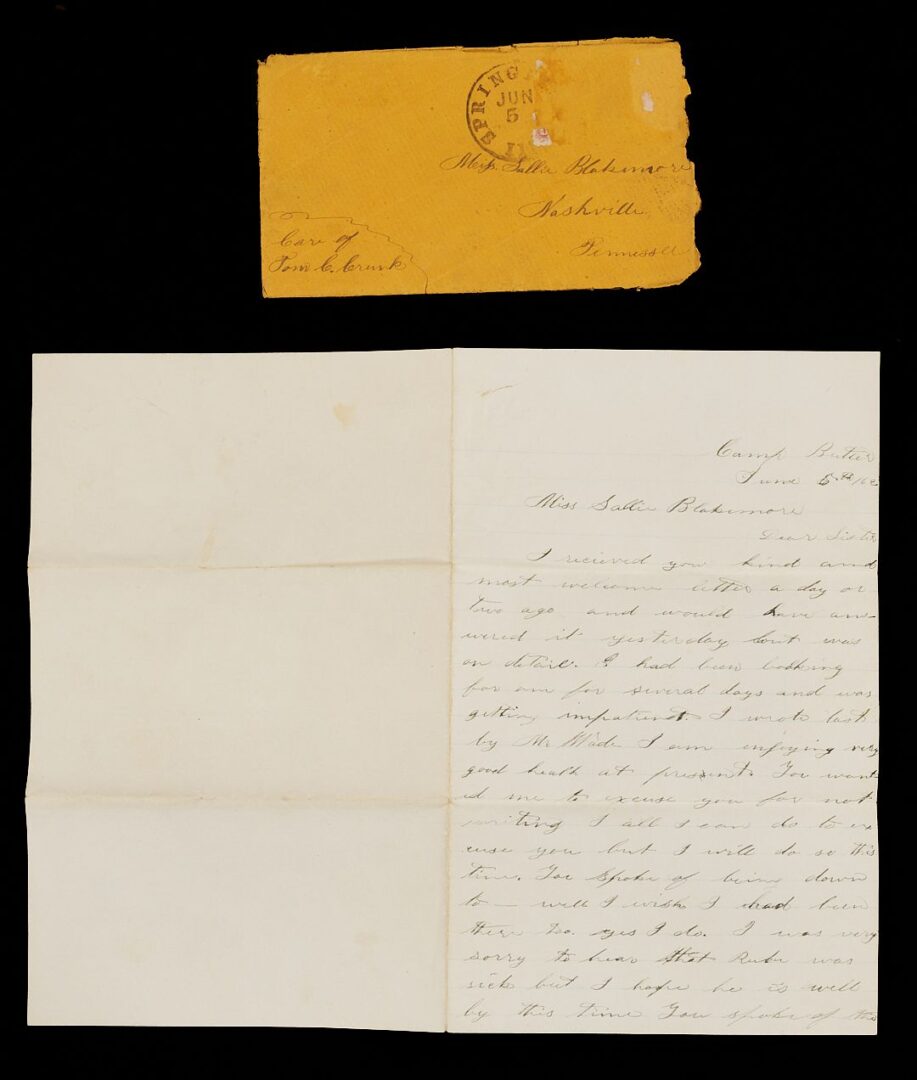 SPRING
JUN
5
Ill
Miss Sallie Blakemore
Nashville
Tennessee
Care of
Tom C. Crunk
Camp Butler
June 5th /62
Miss Sallie Blakemore
Dear Sister
I recieved you kind and
most welcome letter a day or
two ago and would have an-
wered it yesterday but was
on detail. I had been looking
for one for several days and was
getting impatient. I wrote last
by Mr Wade I am injoying very
good health at present. You want
ed me to excuse you for not
writing I all I can do to ex
cuse you but I will do so this
time. You spoke of being down
to — well I wish I had been
there too. yes I do. I was very
sorry to hear that Rube was
sick but I hope he is well
by this time You spoke of the